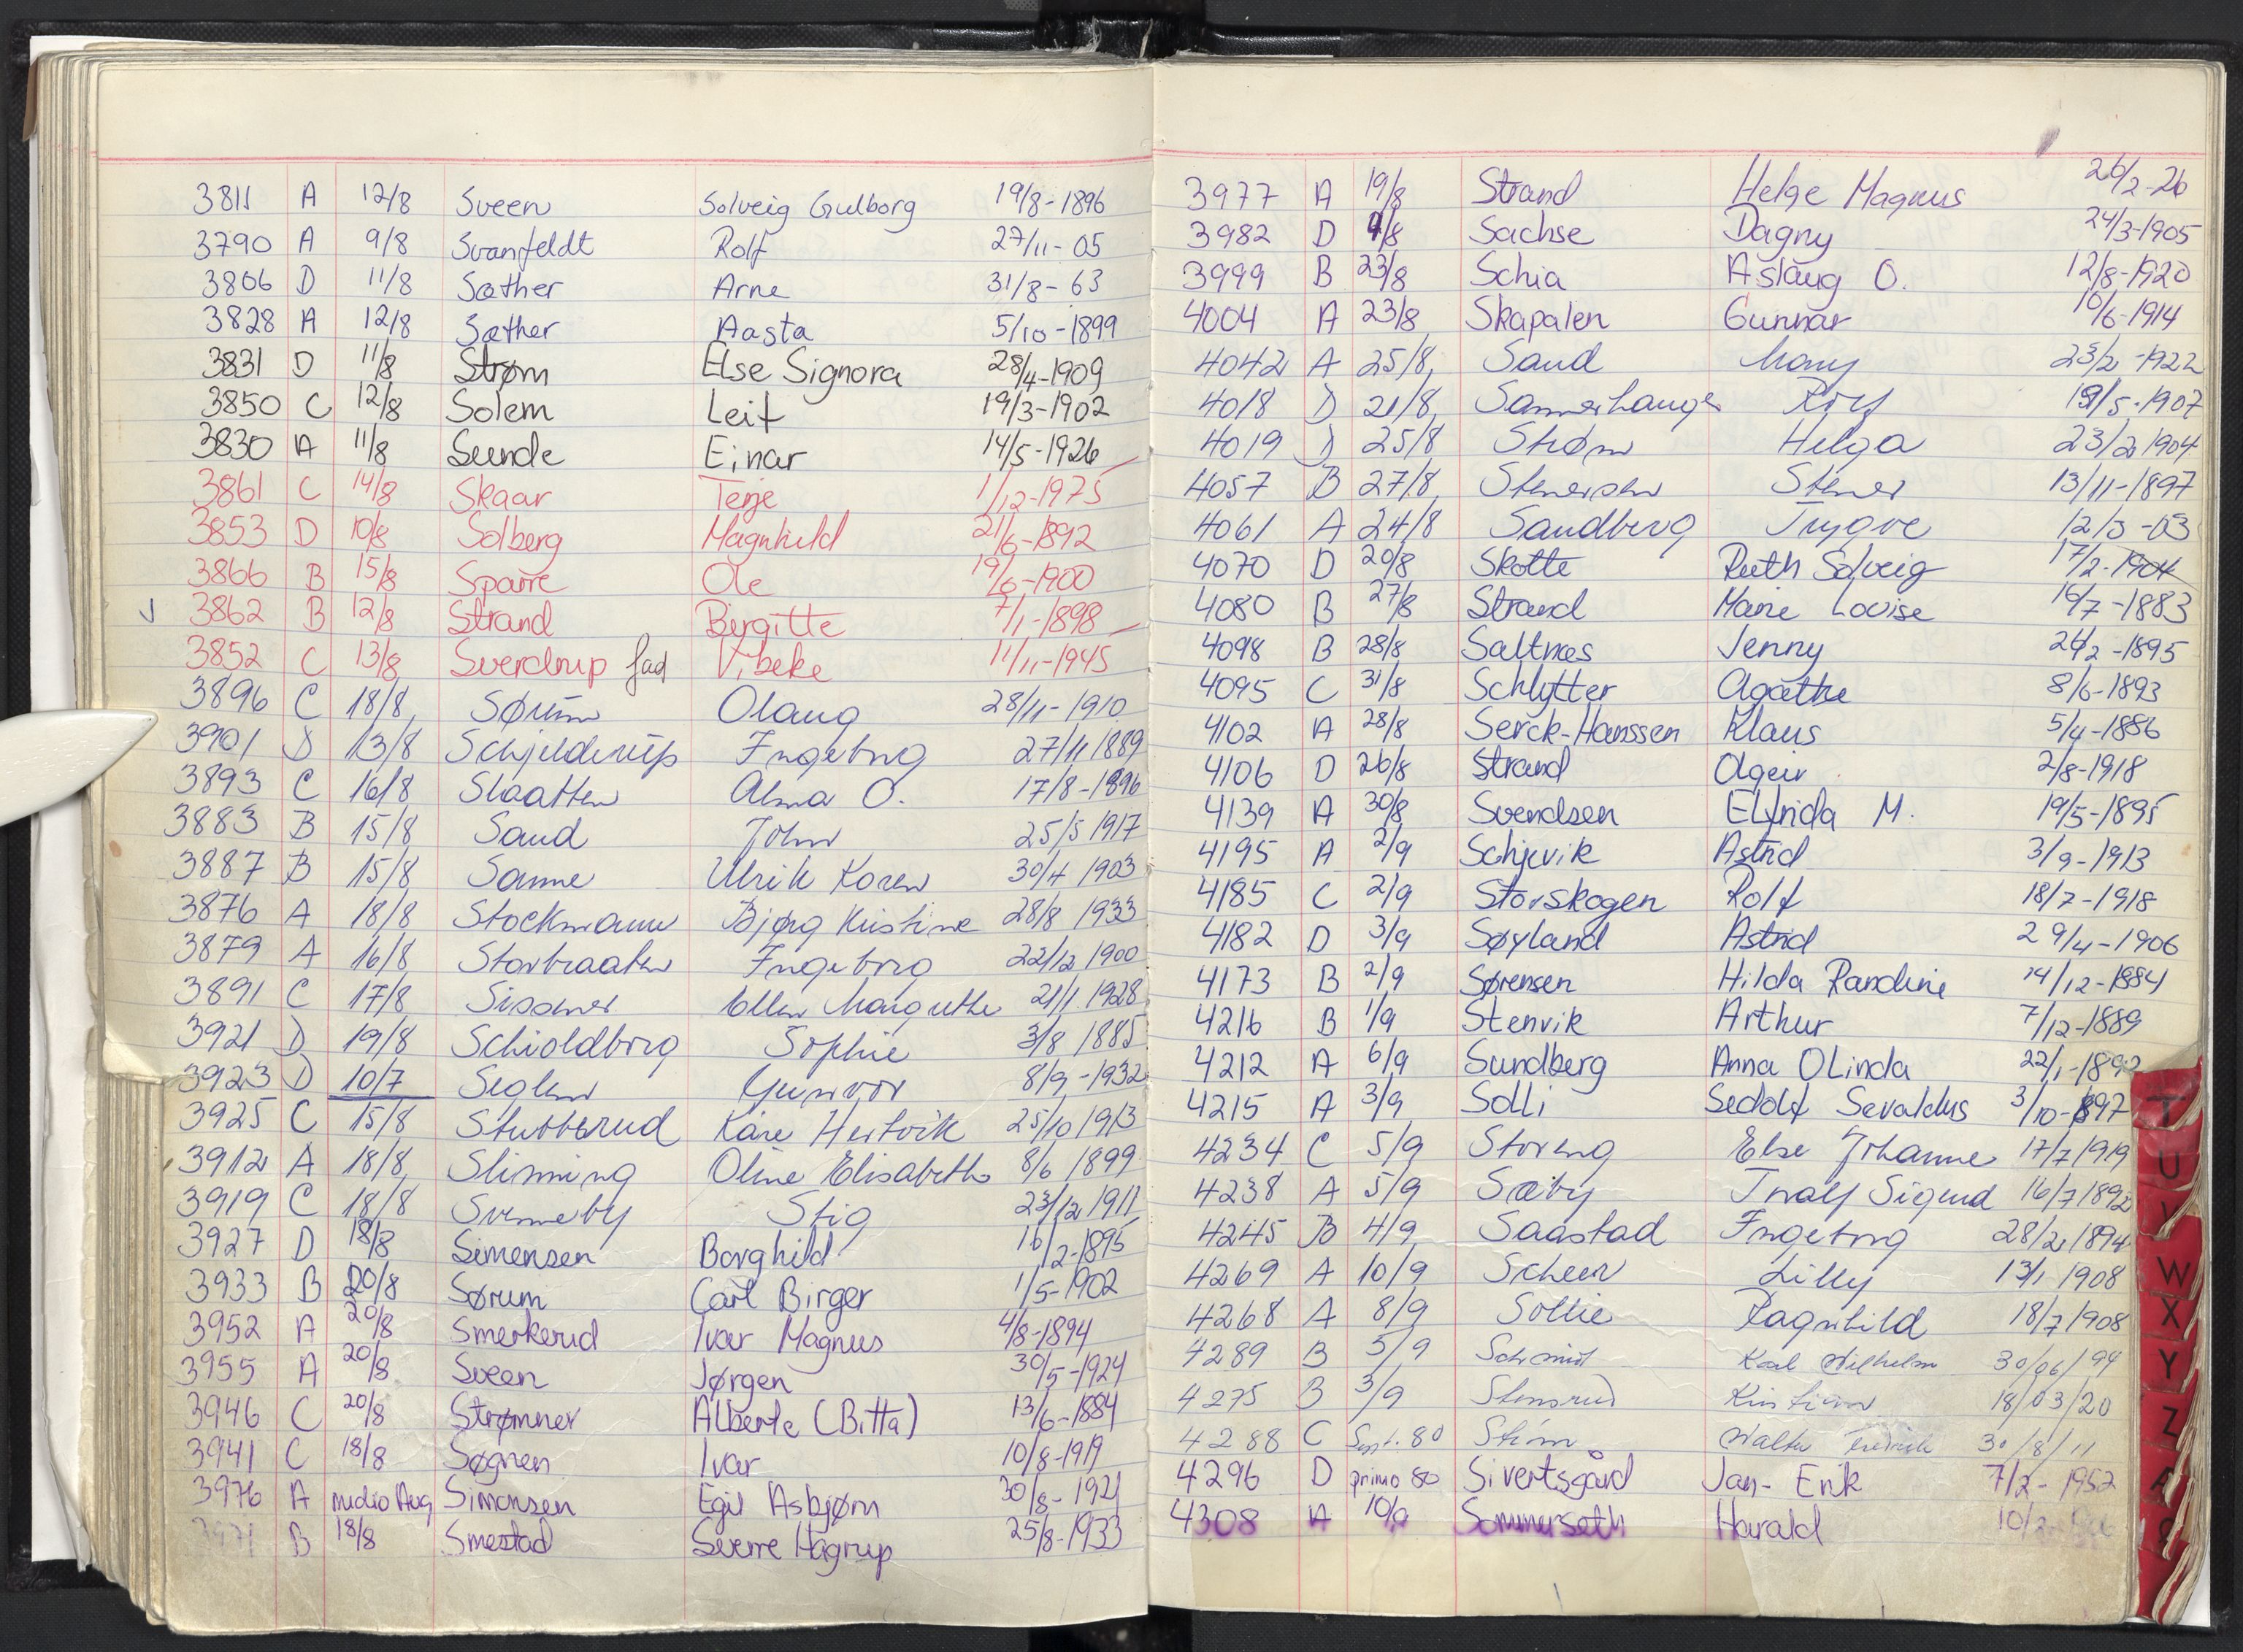 3811 A 12/8 Sveen Solveig Gulborg 19/8-1896
3790 A 9/8 Svanfeldt Rolf 27/11-05
3806 D 11/8 Sæther Arne 31/8-63
3828 A 12/8 Sæther Aasta 5/10-1899
3831 D 11/8 Strøm Else Signora 28/4-1909
3850 C 12/8 Solem Leif 19/3-1902
3830 A 11/8 Sunde Einar 14/5-1926
3861 C 14/8 Skaar Terje 1/12-1975
3853 D 10/8 Solberg Magnhild 21/6-1892
3866 B 15/8 Sparre Ole 19/6-1900
3862 B 12/8 Strand Birgitte 7/1-1898
3852 C 13/8 Sverdrup fad Vibeke 11/11-1945
3896 C 18/8 Sørum Olaug 28/11-1910
3901 D 13/8 Schjelderup Ingeborg 27/11 1889
3893 C 16/8 Slaatten Alma O. 17/8-1896
3883 B 15/8 Sand John 25/5 1917
3887 B 15/8 Sanne Ulrik Koren 30/4 1903
3876 A 18/8 Stockmann Bjørg Kristine 28/8 1933
3879 A 16/8 Storbraaten Ingeborg 22/12 1900
3891 C 17/8 Sissener Ellen Margrethe 21/1 1928
3921 D 19/8 Schioldborg Sophie 3/8 1885
3923 D 10/7 Seglen Gunvor 8/9-1932
3925 C 15/8 Stubberud Kåre Hertvik 25/10 1913
3912 A 18/8 Slinning Oline Elisabeth 8/6 1899
3919 C 18/8 Svenneby Stig 23/12 1911
3927 D 18/8 Simensen Borghild 16/2-1895
3933 B 20/8 Sørum Carl Birger 1/5-1902
3952 A 20/8 Smerkerud Ivar Magnus 4/8-1894
3955 A 20/8 Sveen Jørgen 30/5-1924
3946 C 20/8 Strømner Alberte (Bitta) 13/6-1884
3941 C 18/8 Søgnen Ivar 10/8-1919
3976 A medio Aug Simonsen Egil Asbjørn 30/8-1921
3971 B 18/8 Smestad Sverre Hagrup 25/8-1933
3977 A 19/8 Strand Helge Magnus 26/2-26
3982 D 9/8 Sachse Dagny 24/3-1905
3999 B 23/8 Schia Aslaug O. 12/8-1920
4004 A 23/8 Skapalen Gunnar 10/6-1914
4042 A 25/8 Sand Mary 23/2-1922
4018 D 21/8 Sannerhaugen Rolf 19/5-1907
4019 D 25/8 Strøm Helga 23/2 1904
4057 B 27/8 Stenersen Stener 13/11-1897
4061 A 24/8 Sandberg Trygve 12/3-03
4070 D 20/8 Skotte Ruth Solveig 17/2-1904
4080 B 27/8 Strand Marie Lovise 19/7-1883
4098 B 28/8 Saltnæs Jenny 24/2-1895
4095 C 31/8 Schlytter Agathe 8/6-1893
4102 A 28/8 Serck-Hanssen Klaus 5/4-1886
4106 D 26/8 Strand Olgeir 2/8-1918
4139 A 30/8 Svendsen Elfrida M. 19/5-1895
4195 A 2/9 Schjevik Astrid 3/9-1913
4185 C 2/9 Storskogen Rolf 18/7-1918
4182 D 3/9 Søyland Astrid 29/4-1906
4173 B 2/9 Sørensen Hilda Randine 14/12-1884
4216 B 1/9 Stenvik Arthur 7/12-1889
4212 A 6/9 Sundberg Anna Olinda 22/1-1892
4215 A 3/9 Solli Sedolf Sevaldus 3/10-1897
4234 C 5/9 Storeng Else Johanne 17/7 1919
4238 A 5/9 Sæby Inolf Sigurd 16/7 1892
4245 B 4/9 Saastad Ingeborg 28/2 1894
4269 A 10/9 Scheen Lilly 13/1 1908
4268 A 8/9 Sollie Ragnhild 18/7 1908
4289 B 5/9 Schmidt Karl Wilhelm 30/06/94
4275 B 3/9 Stensrud Kristian 18/03/20
4288 C Sept. 80 Walter 30/8/11
4296 D primo 80 Sivertsgård Jan-Erik 7/2-1952
4308 A 10/9 Sommerseth Harald
T
U
V
W
X
Y
Z